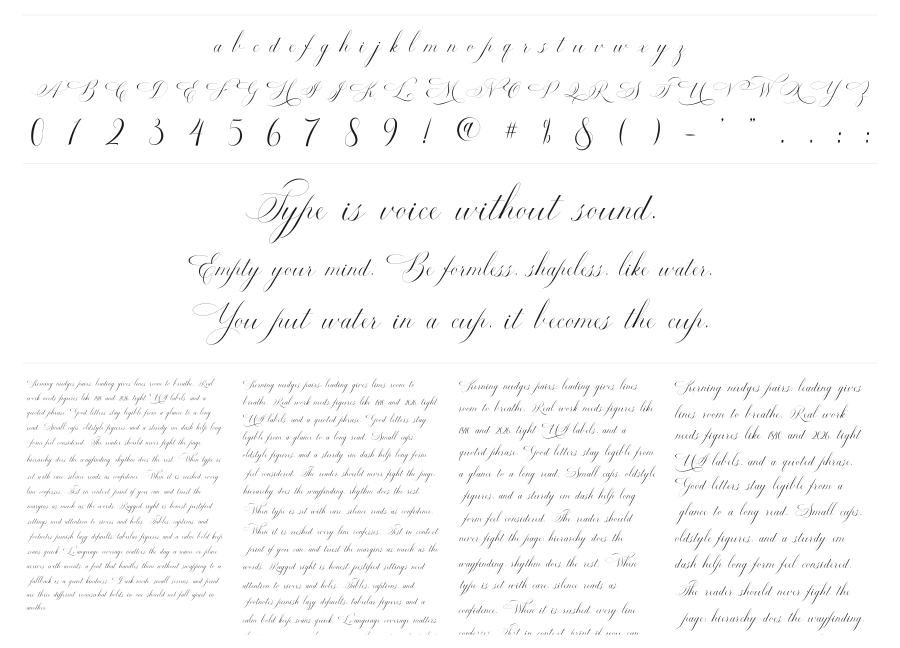 a b c d e f g h i j k l m n o p q r s t u v w x y z
A B C D E F G H I J K L M N O P Q R S T U V W X Y Z
0 1 2 3 4 5 6 7 8 9 ! @ # % & ( ) - ' " . , : ;
Type is voice without sound.
Empty your mind. Be formless, shapeless, like water.
You put water in a cup, it becomes the cup.
Kerning nudges pairs; leading gives lines room to breathe. Real
work needs figures like 1810 and 2026, tight UI labels, and a
quoted phrase. Good letters stay legible from a glance to a long
read. Small caps, oldstyle figures, and a sturdy em dash help long
form feel considered. The reader should never fight the page;
hierarchy does the wayfinding, rhythm does the rest. When type is
set with care, silence reads as confidence. When it is rushed, every
line confesses. Test in context, print if you can, and trust the
margins as much as the words. Ragged right is honest; justified
settings need attention to rivers and holes. Tables, captions, and
footnotes punish lazy defaults; tabular figures and a calm bold keep
scans quick. Language coverage matters the day a name or place
arrives with accents; a font that handles them without swapping to a
fallback is a quiet kindness.
Kerning nudges pairs; leading gives lines room to
breathe. Real work needs figures like 1810 and 2026, tight
UI labels, and a quoted phrase. Good letters stay
legible from a glance to a long read. Small caps,
oldstyle figures, and a sturdy em dash help long form
feel considered. The reader should never fight the page;
hierarchy does the wayfinding, rhythm does the rest.
When type is set with care, silence reads as confidence.
When it is rushed, every line confesses. Test in context,
print if you can, and trust the margins as much as the
words. Ragged right is honest; justified settings need
attention to rivers and holes. Tables, captions, and
footnotes punish lazy defaults; tabular figures and a
calm bold keep scans quick. Language coverage matters
Kerning nudges pairs; leading gives lines
room to breathe. Real work needs figures like
1810 and 2026, tight UI labels, and a
quoted phrase. Good letters stay legible from
a glance to a long read. Small caps, oldstyle
figures, and a sturdy em dash help long
form feel considered. The reader should
never fight the page; hierarchy does the
wayfinding, rhythm does the rest. When
type is set with care, silence reads as
confidence. When it is rushed, every line
confesses. Test in context, print if you can,
Kerning nudges pairs; leading gives
lines room to breathe. Real work
needs figures like 1810 and 2026, tight
UI labels, and a quoted phrase.
Good letters stay legible from a
glance to a long read. Small caps,
oldstyle figures, and a sturdy em
dash help long form feel considered.
The reader should never fight the
page; hierarchy does the wayfinding,